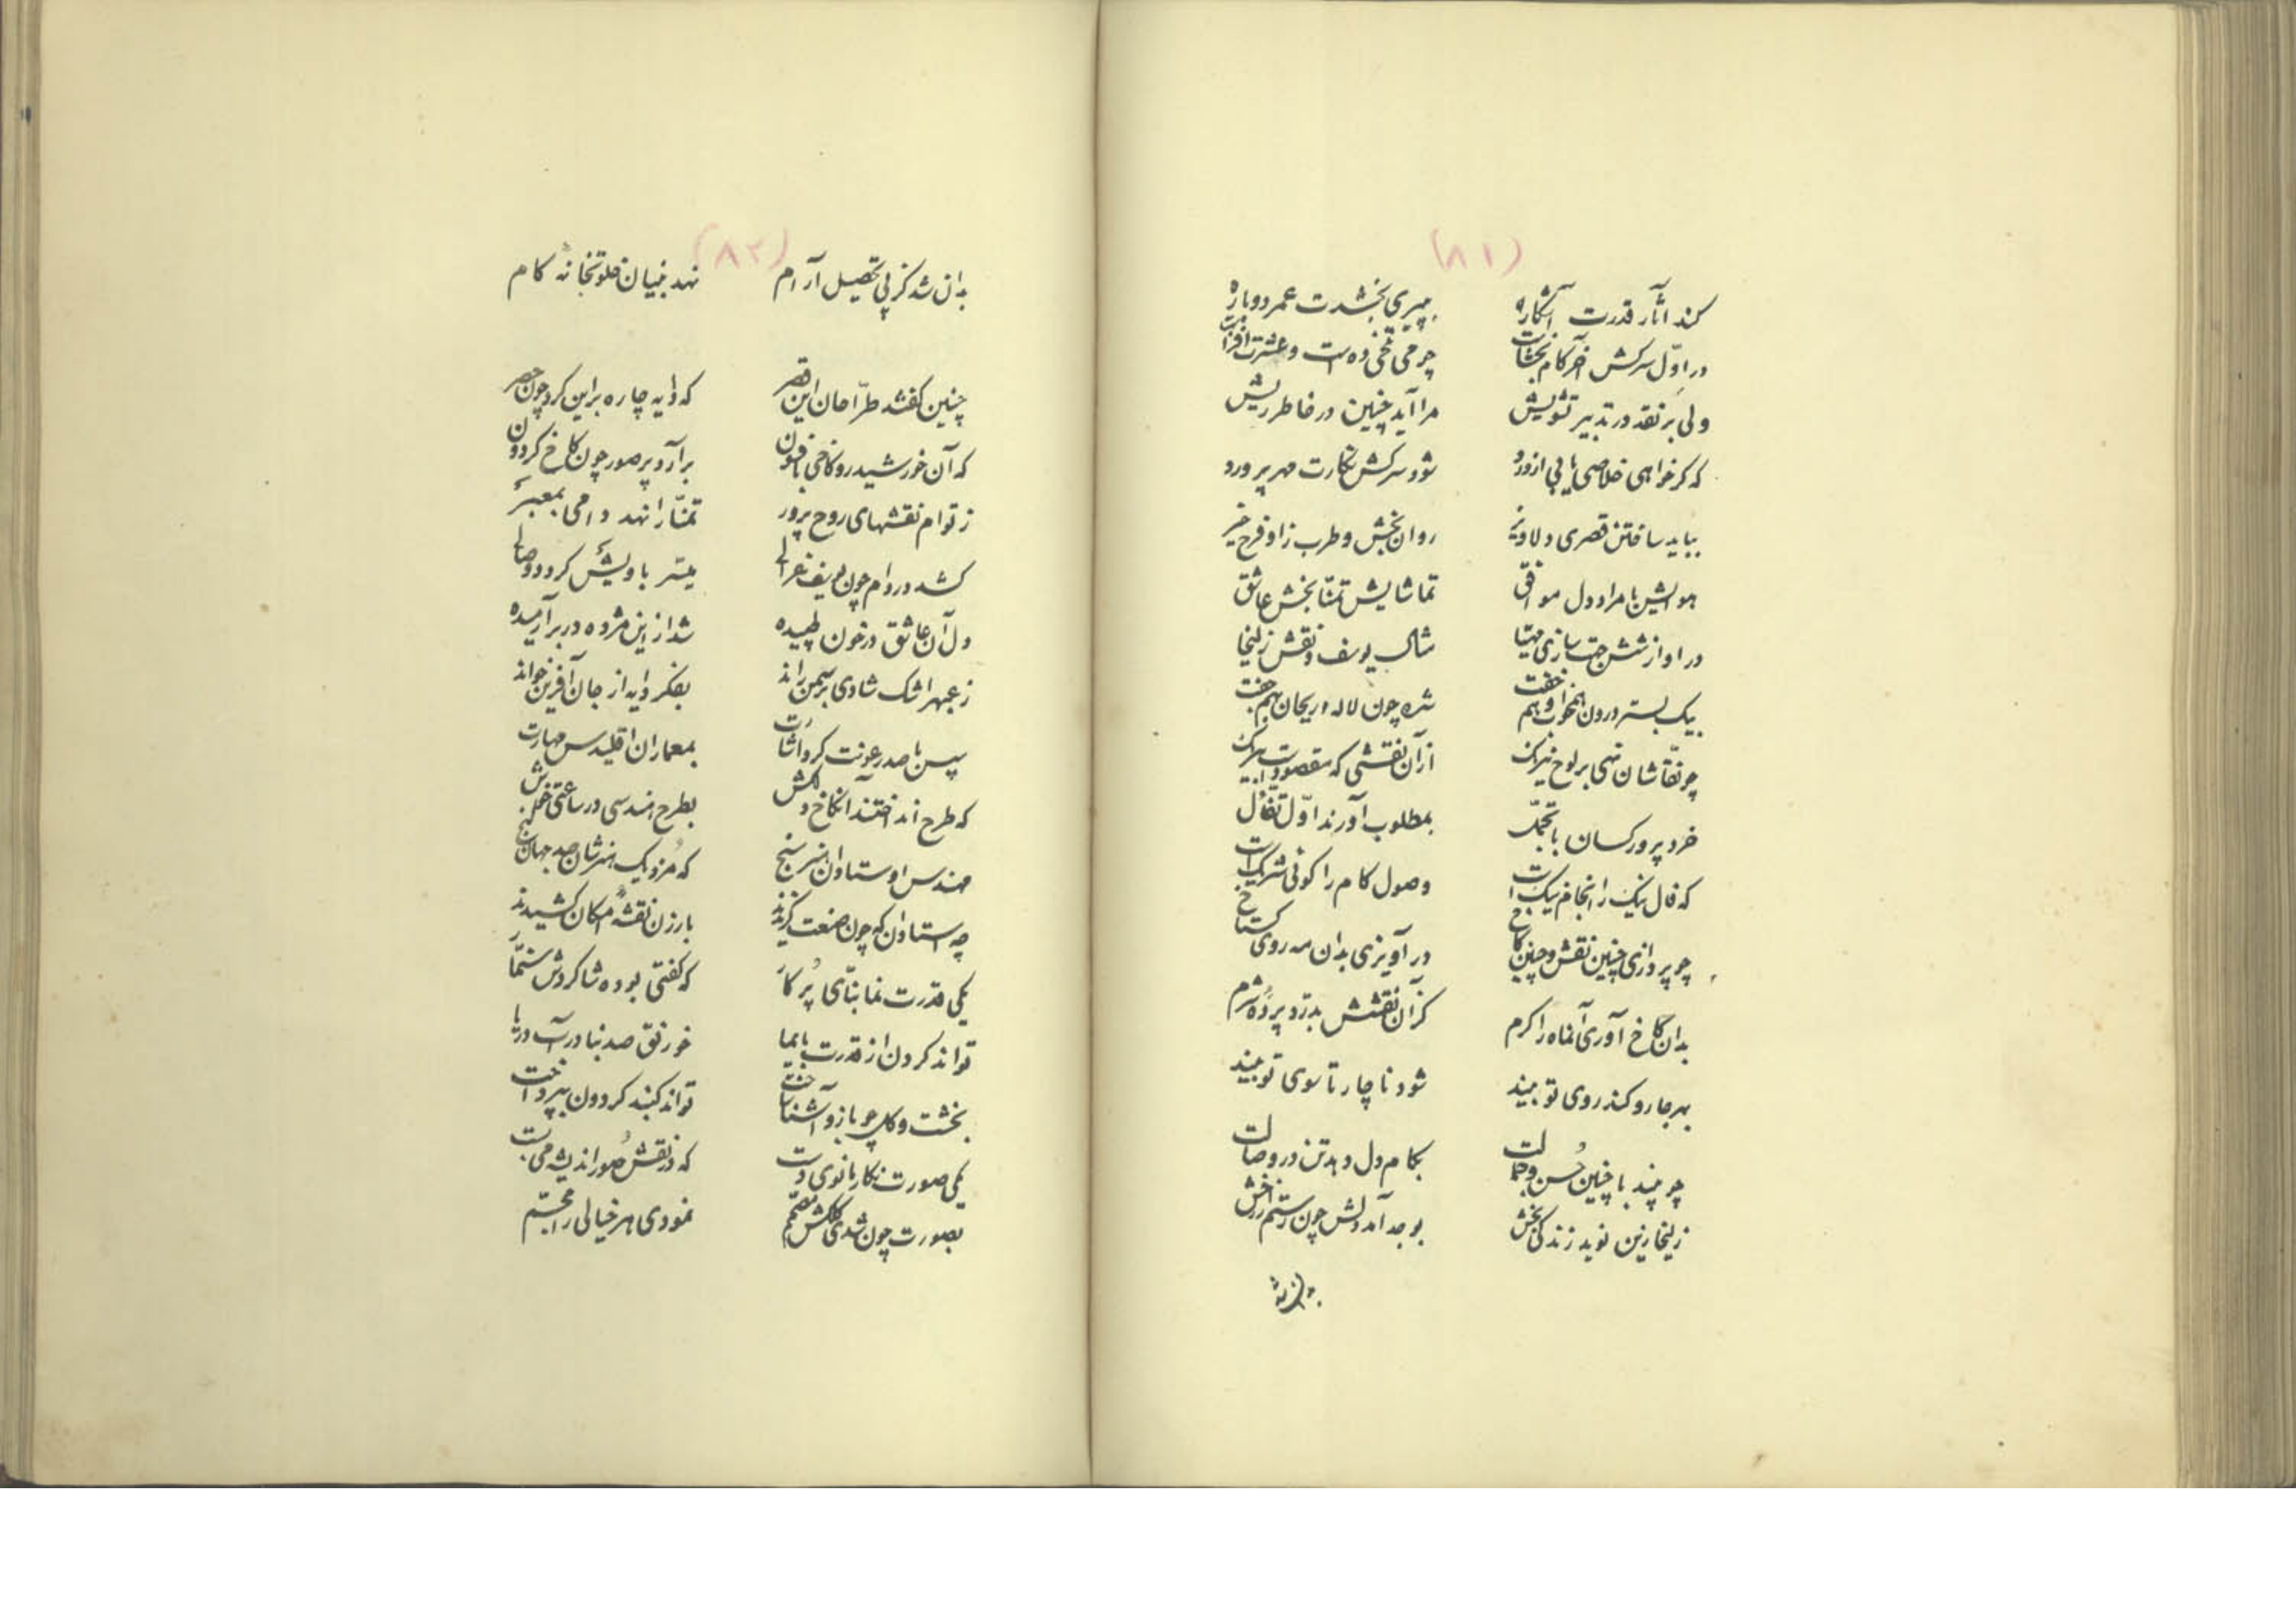 (۸۱)
کند آثار قدرت آشکاره بپیری بخشدت عمر دوباره
در اوّل سرکش آخر کام بخشاست چو می تلخی ده است و عشرت افزاست
ولی بر نقد در تدبیر تشویش مرا آید چنین در خاطر ریش
که کر خواهی خلاصی یابی از درد شود سرکش نکارت مهر پرورد
بباید ساختن قصری دلاویز روان بخش و طرب زا و فرح خیز
هوایش با مراد دل موافق تماشایش تمنّا بخش عاشق
در او از شش جهت سازی مهیّا مثال یوسف و نقش زلیخا
بیک بستر درون همخواب و هم خفت شده چون لاله و ریحان بهم جفت
چو نقّاشان نهی بر لوح نیرنک از آن نقشی که مقصودت
خرد پرور کسان با تجمّل بمطلوب آورند اوّل تفأّل
که فال نیک را انجام نیک است وصول کام را کوئی شریک است
چو پردازی چنین نقش و چنین کاخ در آویزی بدان مه روی کستاخ
بدان کاخ آوری آنماه را کرم کز آن نقشش بدرّد پردهٔ شرم
بهر جا رو کند روی تو بیند شود ناچار تا سوی تو بیند
چو بیند با چنین حُسن و جمالت بکام دل دهد تن در وصالت
زلیخا زین نوید زندکی بخش بوجد آمد دلش چون رستم از رخش
(۸۲)
بدان شد کز پی تحصیل آرام نهد بنیان خلوتخانهٔ کام
چنین کفتند طرّاحان این قصر که دایه چاره بر این کرد چون حصر
که آن خورشید رو کاخی با فسون برآرد پر صور چون کاخ کردون
ز توام نقشهای روح پرور تمنّا را نهد دامی بمعبر
کشد در دام چون یوسف غزالی میسّر با ویش کردد وصالی
دل آن عاشق در خون طپیده شد از این مژده در بر آرمیده
ز عبهر اشک شادی بر سمن راند بفکر دایه از جان آفرین خواند
سپس با صد رعونت کرد اشارت بمعماران اقلیدس مهارت
که طرح انداختند آنکاخ دلکش بطرح هندسی در ساعتی خوش
مهندس اوستادان هنر سنج که مُزد یک هنرشان صد جهان کنج
چه استادان که چون صنعت کزیدند بارزن نقشهٔ امکان کشیدند
یکی قدرت نما بنّای پُر کار که کفتی بوده شاکردش سنمّار
تواند کردن از قدرت بایما خورنق صد بنا در آب دریا
بخشت و کل چو بازو آشنا ساخت تواند کنبد کردون بپرداخت
یکی صورت نکار مانوی دست که در نقش صُور اندیشه می بست
بصورت چون شدی کلکش مصمّم نمودی هر خیالی را مجسّم